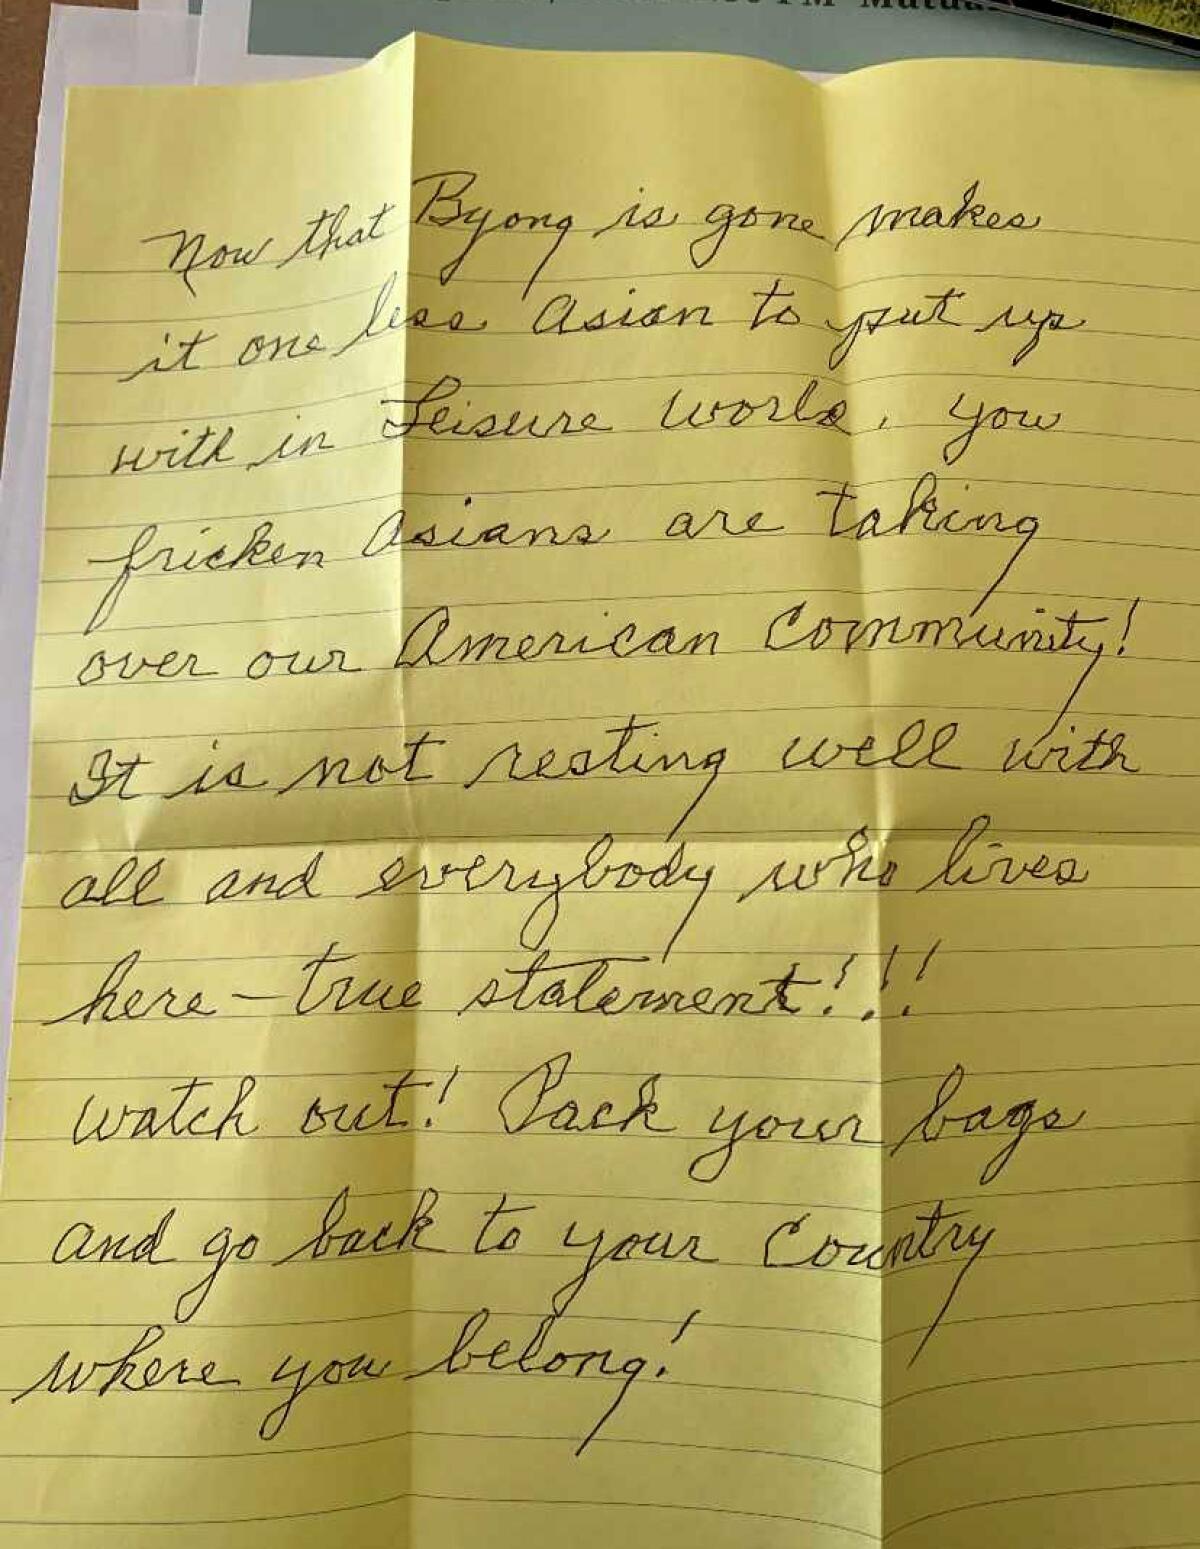 PM Mutua
Now that Byong is gone makes
it one less Asian to put up
with in Leisure World, you
fricken Asians are taking
over our American Community!
It is not resting well with
all and everybody who lives
here - true statement!!!
watch out! Pack your bags
and go back to your Country
where you belong!